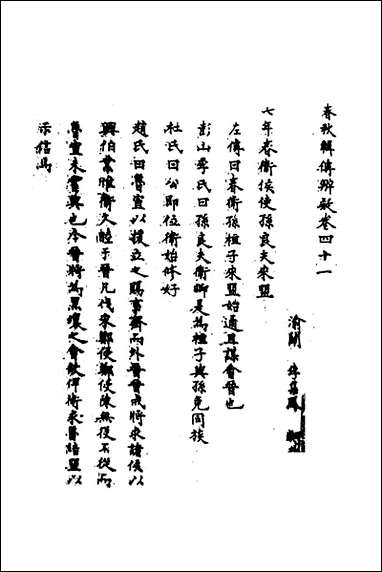 春秋輯傳辨疑卷四十一
渝關 李集鳳
七年春衛侯使孫良夫來盟
左傳曰春衛孫桓子來盟始通且謀會晉也
彭山季氏曰孫良夫衛卿是為桓子與孫免同族
杜氏曰公即位衛始修好
趙氏曰魯宣以援立之賜事齊而外晉晉成將求諸侯以
興伯業雖衛久睦于晉凡伐宋鄭使鄭使陳無役不從而
魯宣未嘗與也今晉將為黑壤之會故俾衛來魯結盟以
示信焉